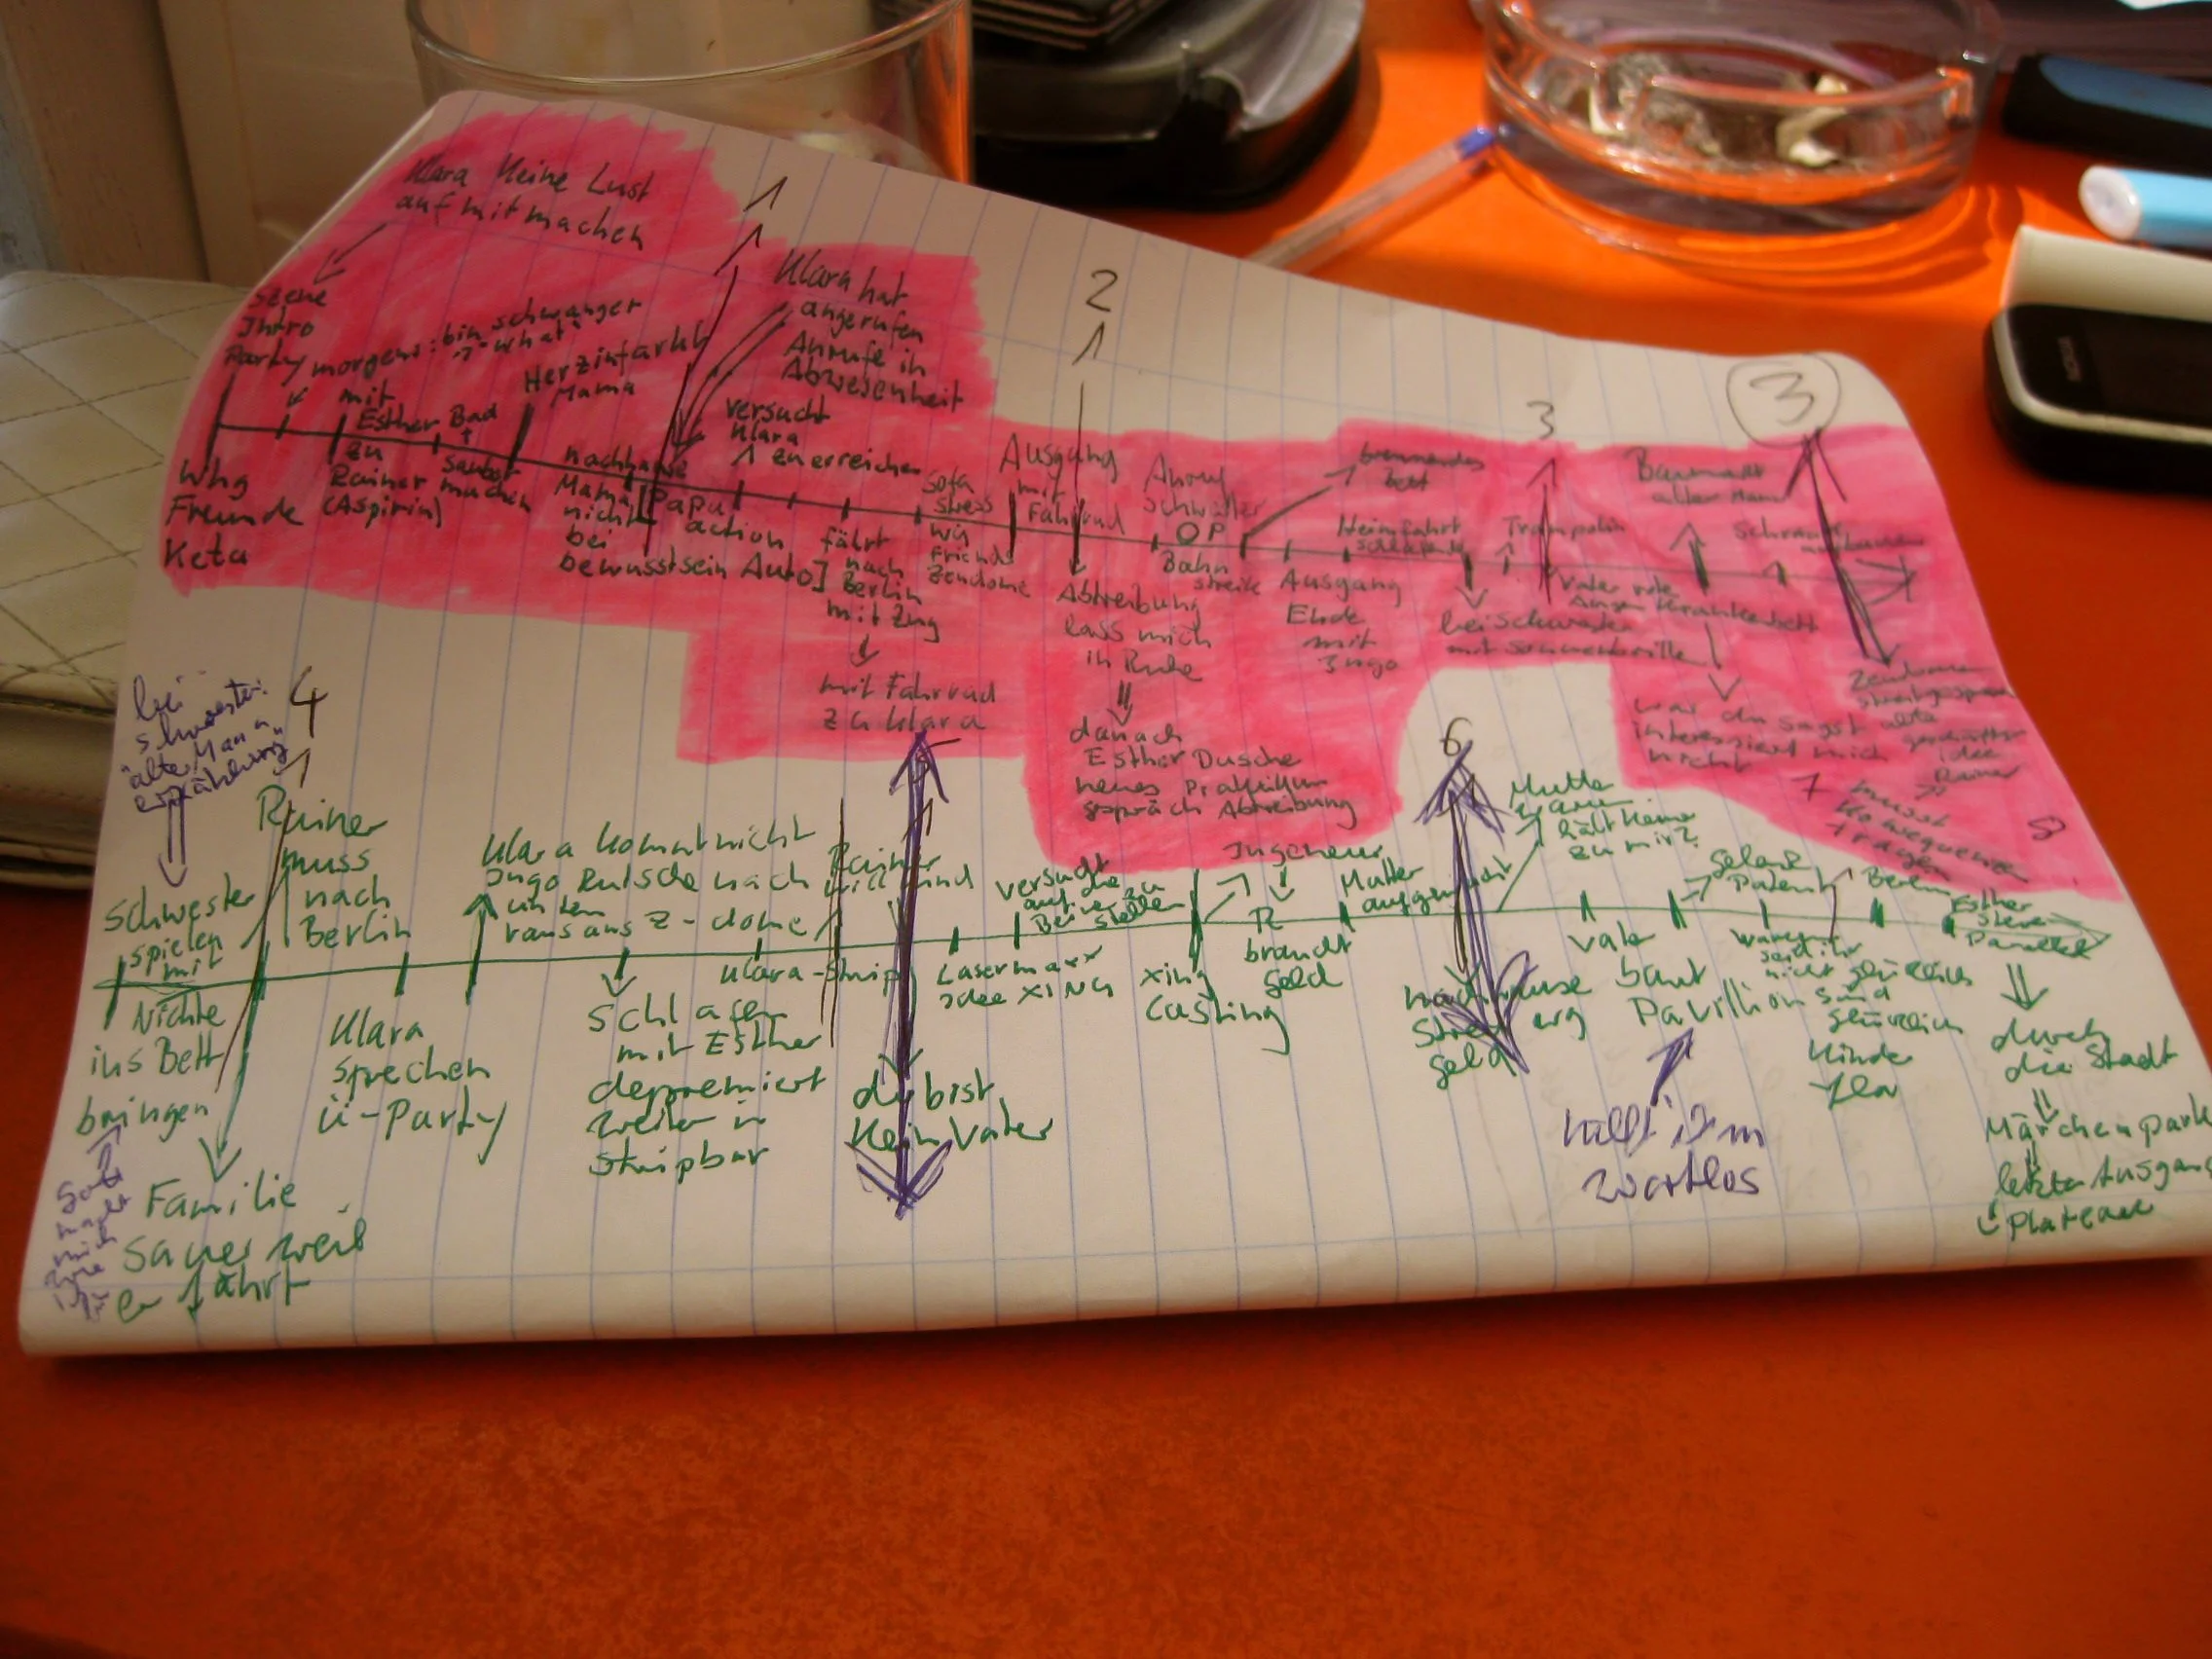 Klara Keine Lust
auf mitmachen
Szene
Intro
Party
morgens: bin schwanger
"what"
mit
Esther
zu
Rainer
(Aspirin)
Bad
sauber
machen
Herzinfarkt
Mama
Whg
Freunde
Keta
1
Klara hat
angerufen
Anrufe in
Abwesenheit
versucht
Klara
zu erreichen
nachhause
Mama
nicht
bei
bewusstsein
[Papa
action
Auto]
fährt
nach
Berlin
mit Zug
mit Fahrrad
zu Klara
Sofa
stress
wg
Friends
Zendome
2
Ausgang
mit
Fahrrad
Abtreibung
lass mich
in Ruhe
danach
Esther Dusche
neues Praktikum
gespräch Abtreibung
Anruf
OP
Bahn
streik
brennendes
bett
Ausgang
Ende
mit
Ingo
Heimfahrt
3
Trampolin
bei Schwester
mit Sonnenbrille
Vater rote
Augen Krankenbett
was du sagst
interessiert mich
nicht
Baumarkt
alter Mann
3
Zendome
streitgespräch
alte
geschäfts
idee
Rainer
7
musst
Konsequenzen
tragen
8
bei
schwester:
"alter Mann
erzählung"
4
Rainer
muss
nach
Berlin
Schwester
spielen
mit
Nichte
ins Bett
bringen
Familie
sauer weil
er fährt
Klara
sprechen
ü-Party
Klara kommt nicht
Ingo Rutsche nach
unten
raus aus Z-dome
schlafen
mit Esther
deppremiert
weiter in
stripbar
Klara-strip
5
Rainer
will Kind
du bist
kein Vater
Lasermaxx
Idee XING
versucht
auf die
Beine zu
stellen
xing
Casting
Ingeneur
R
braucht
Geld
Mutter
aufgewacht
6
nachhause
Streit wg
Geld
Mutter
warum
hält keiner
zu mir?
Vater
baut
Pavillion
hilft ihm
wortlos
Patent
warum
seid ihr
nicht glücklich
sind
glücklich
Kinder
Berlin
Esther
Parallel
durch
die Stadt
Märchenpark
letzter Ausgang
Plateau